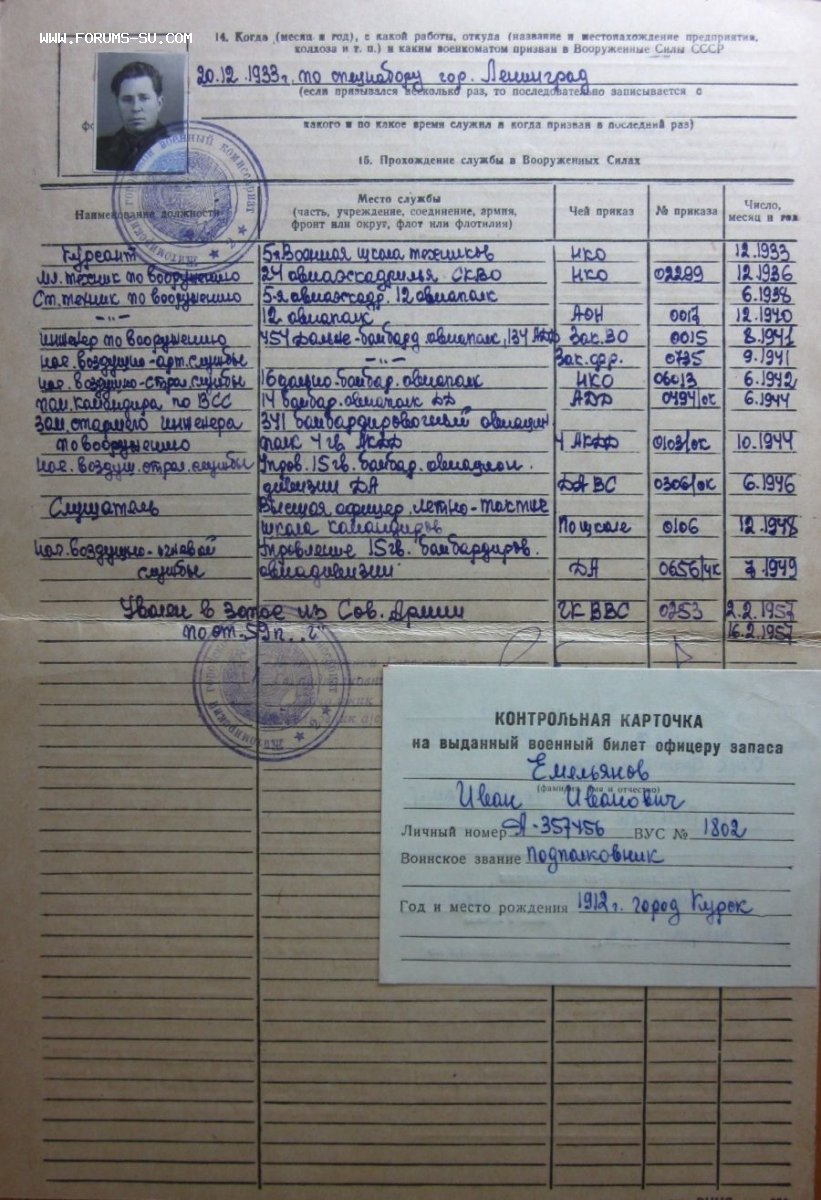 WWW.FORUMS-SU.COM
14. Когда (месяц и год), с какой работы, откуда (название и местонахождение предприятия,
колхоза и т. п.) и каким военкоматом призван в Вооруженные Силы СССР
20.12.1933г. по спецнабору гор. Ленинград
(если призывался несколько раз, то последовательно записывается с
какого и по какое время служил и когда призван в последний раз)
15. Прохождение службы в Вооруженных Силах
Наименование должности Место службы (часть, учреждение, соединение, армия, фронт или округ, флот или флотилия) Чей приказ № приказа Число, месяц и год
Курсант 5я Военная школа техников НКО 12.1933
Мл. техник по вооружению 24 авиаэскадрилья СКВО НКО 02299 12.1936
Ст. техник по вооружению 5-я авиаэскадр. 12 авиаполк 6.1938
-"- 12 авиаполк АОН 0017 12.1940
инженер по вооружению 454 Дальне-бомбард. авиаполк, 134 АДД Зак.ВО 0015 8.1941
нач. воздушно-арт. службы -"- Зак.фр. 0735 9.1941
нач. воздушно-стрел. службы бомбар. авиаполк НКО 06013 6.1942
пом. командира по ВСС 14 бомбар. авиаполк ДД АДД 0494/ок 6.1944
Зам. старшего инженера 341 бомбардировочный авиацион
по вооружению полк 4 гв. АКДД 4 АКДД 0103/ок 10.1944
нач. воздуш. стрел. службы Управ. 15 гв. бомбар. авиацион.
дивизии ДА ДА ВС 0306/ок 6.1946
Слушатель Высшая офицер. летно-тактич
школа командиров По школе 0106 12.1948
нач. воздушно-огневой Управление 15 гв. бомбардиров.
службы авиадивизии ДА 0656/ук 7.1949
Уволен в запас из Сов. Армии ГК ВВС 0253 2.2.1957
по ст. 59 п. "г" 16.2.1957
КОНТРОЛЬНАЯ КАРТОЧКА
на выданный военный билет офицеру запаса
Емельянов
(фамилия, имя и отчество)
Иван Иванович
Личный номер А-357456 ВУС № 1802
Воинское звание подполковник
Год и место рождения 1912 г. город Курск